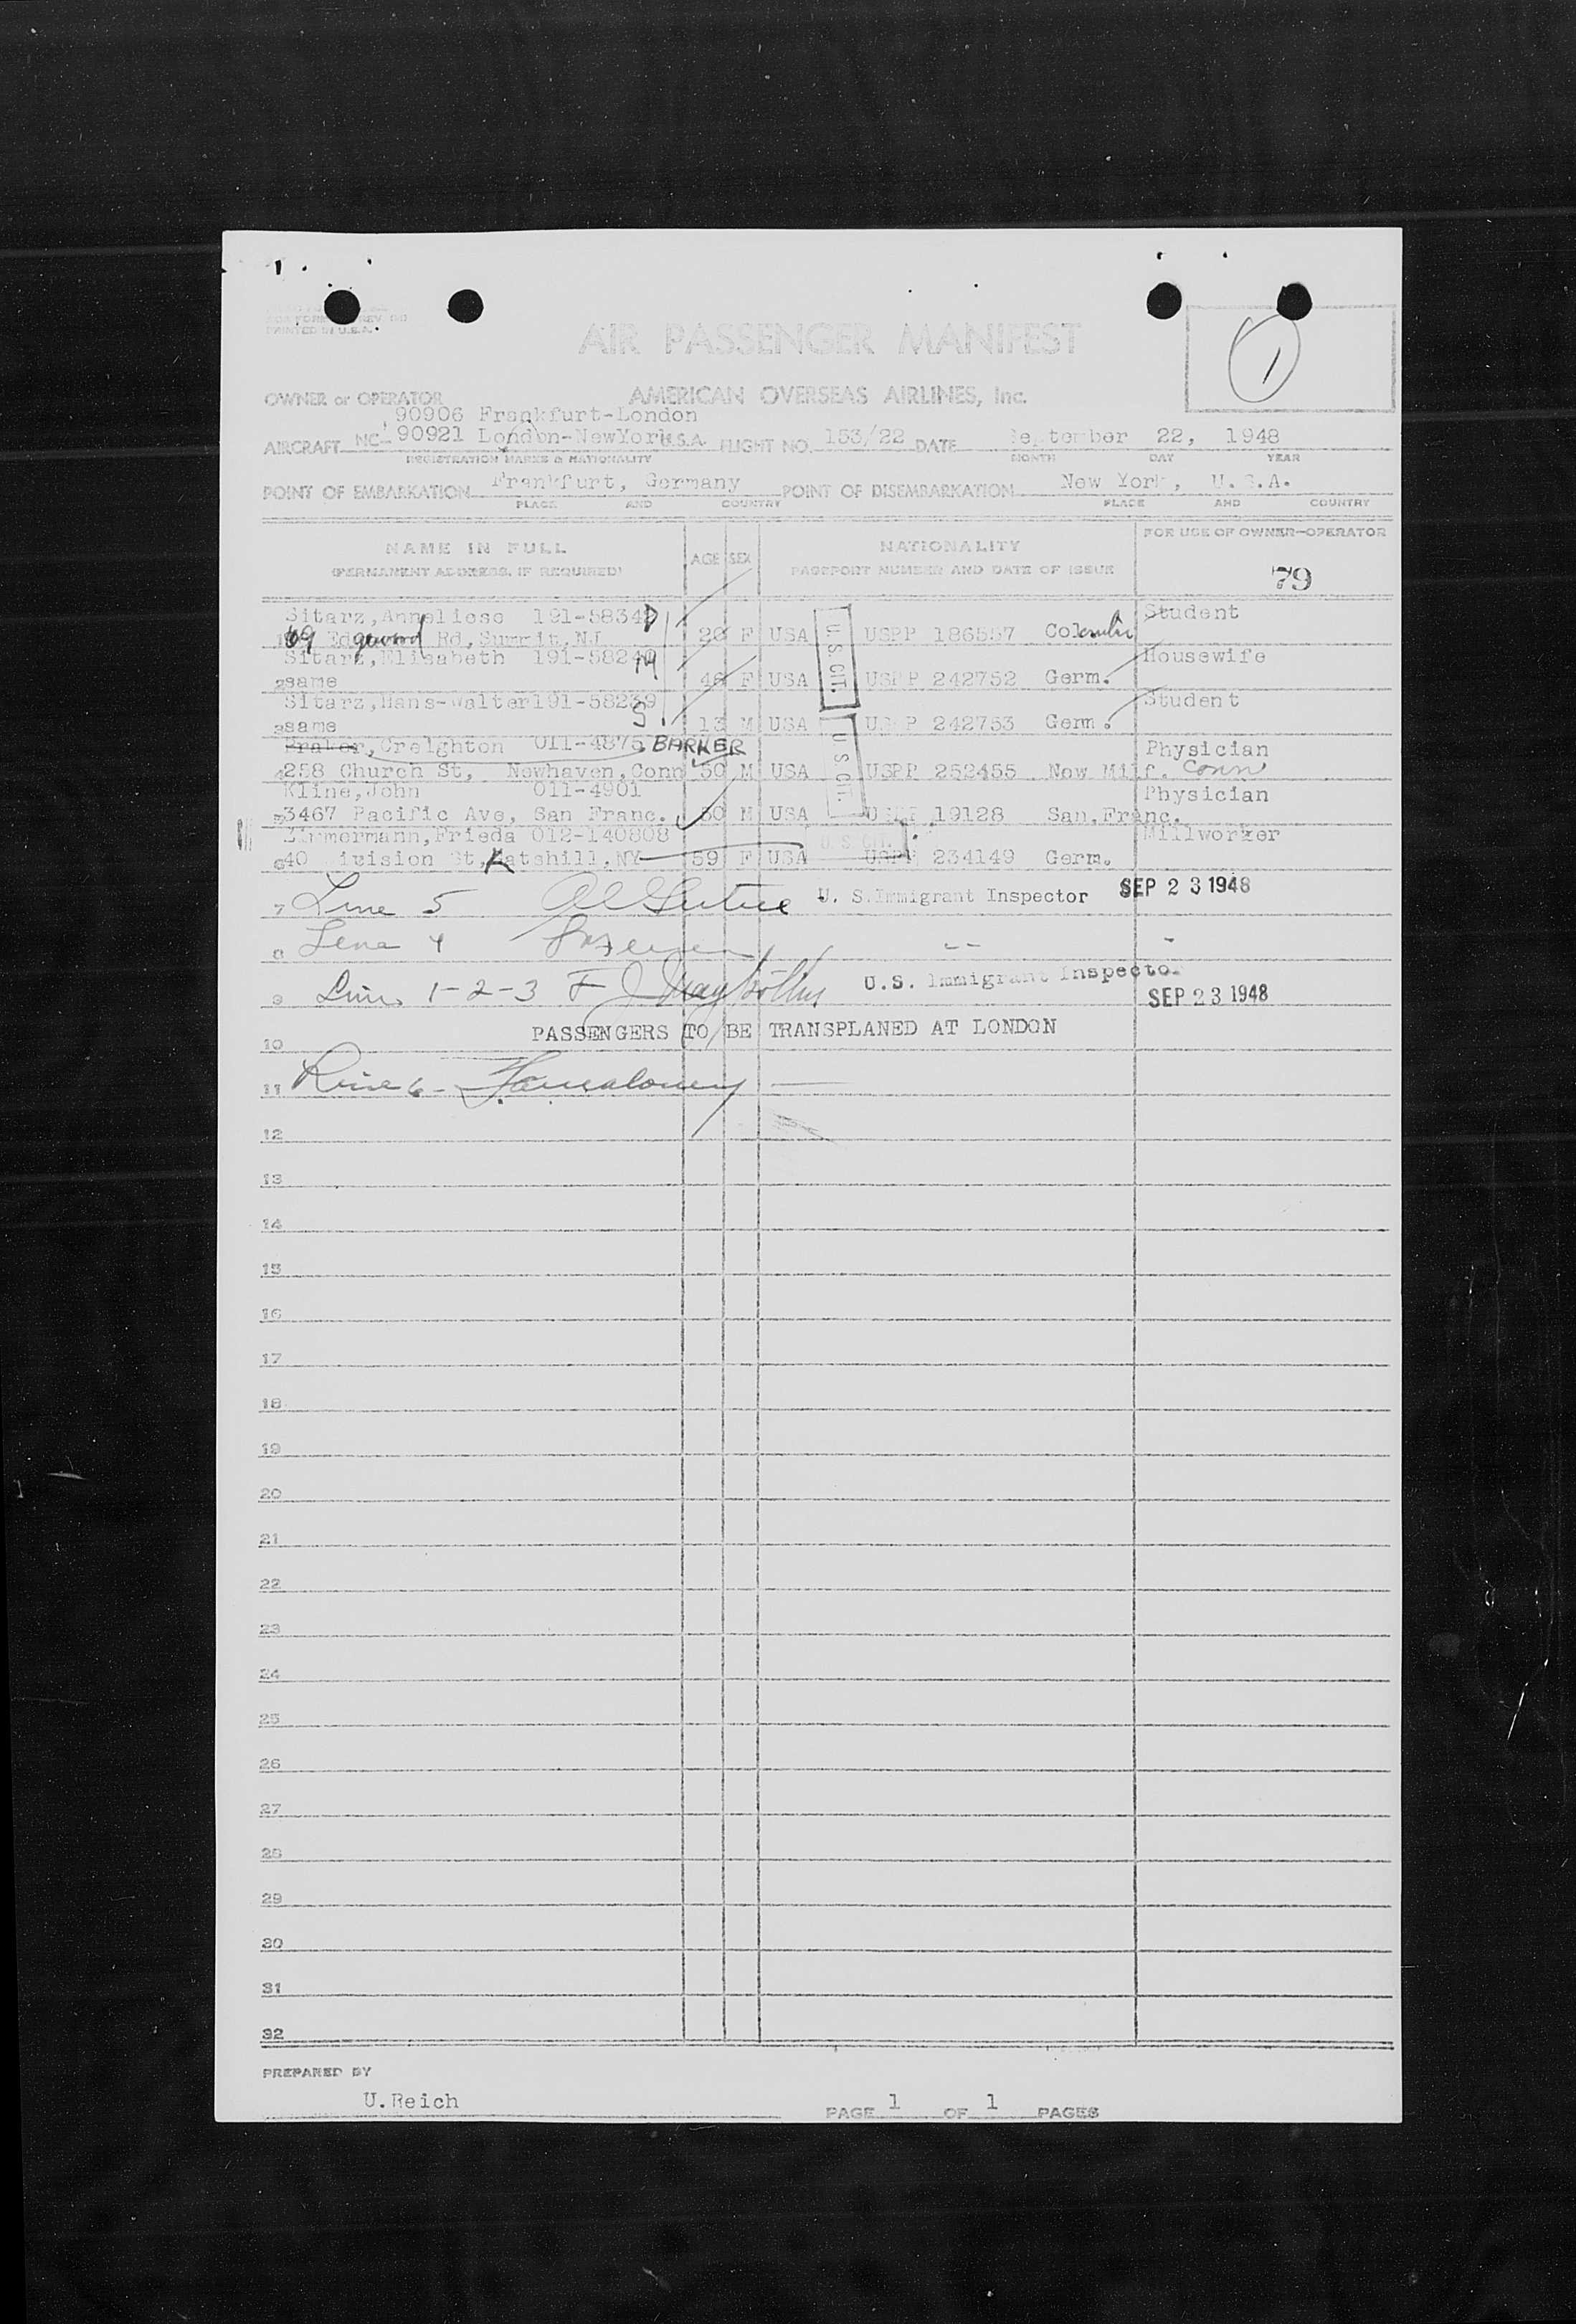 1
PRINTED IN U.S.A.
AIR PASSENGER MANIFEST
1
OWNER or OPERATOR AMERICAN OVERSEAS AIRLINES, Inc.
90906 Frankfurt-London
AIRCRAFT NC 90921 London-NewYork U.S.A. FLIGHT NO. 153/22 DATE September 22, 1948
REGISTRATION MARKS & NATIONALITY MONTH DAY YEAR
POINT OF EMBARKATION Frankfurt, Germany POINT OF DISEMBARKATION New York, U.S.A.
PLACE AND COUNTRY PLACE AND COUNTRY
NAME IN FULL AGE SEX NATIONALITY FOR USE OF OWNER-OPERATOR
(PERMANENT ADDRESS, IF REQUIRED) PASSPORT NUMBER AND DATE OF ISSUE 79
Sitarz,Anneliese 191-5834 D Student
1 69 Edgewood Rd,Summit,NJ 20 F USA U.S. CIT. USPP 186557
Sitarz,Elisabeth 191-58240 M Housewife
2 same 46 F USA USPP 242752 Germ.
Sitarz,Hans-Walter 191-58239 S Student
3 same 13 M USA U S CIT. USPP 242753 Germ.
Creighton 011-4875 BARKER Physician
4 258 Church St, Newhaven,Conn 30 M USA USPP 252455 New Milf. Conn
Kline,John 011-4901 Physician
5 3467 Pacific Ave, San Franc. 30 M USA USPP 19128 San.Franc.
Zimmermann,Frieda 012-140808 U S CIT. Millworker
6 40 Division St, Katshill,NY 59 F USA USPP 234149 Germ.
7 Line 5 U. S. Immigrant Inspector SEP 23 1948
8 Line 4 -- -
9 Line 1-2-3 F J U.S. Immigrant Inspector
SEP 23 1948
PASSENGERS TO BE TRANSPLANED AT LONDON
10
11 Line 6-
12
13
14
15
16
17
18
19
20
21
22
23
24
25
26
27
28
29
30
31
32
PREPARED BY
U.Reich
PAGE 1 OF 1 PAGES